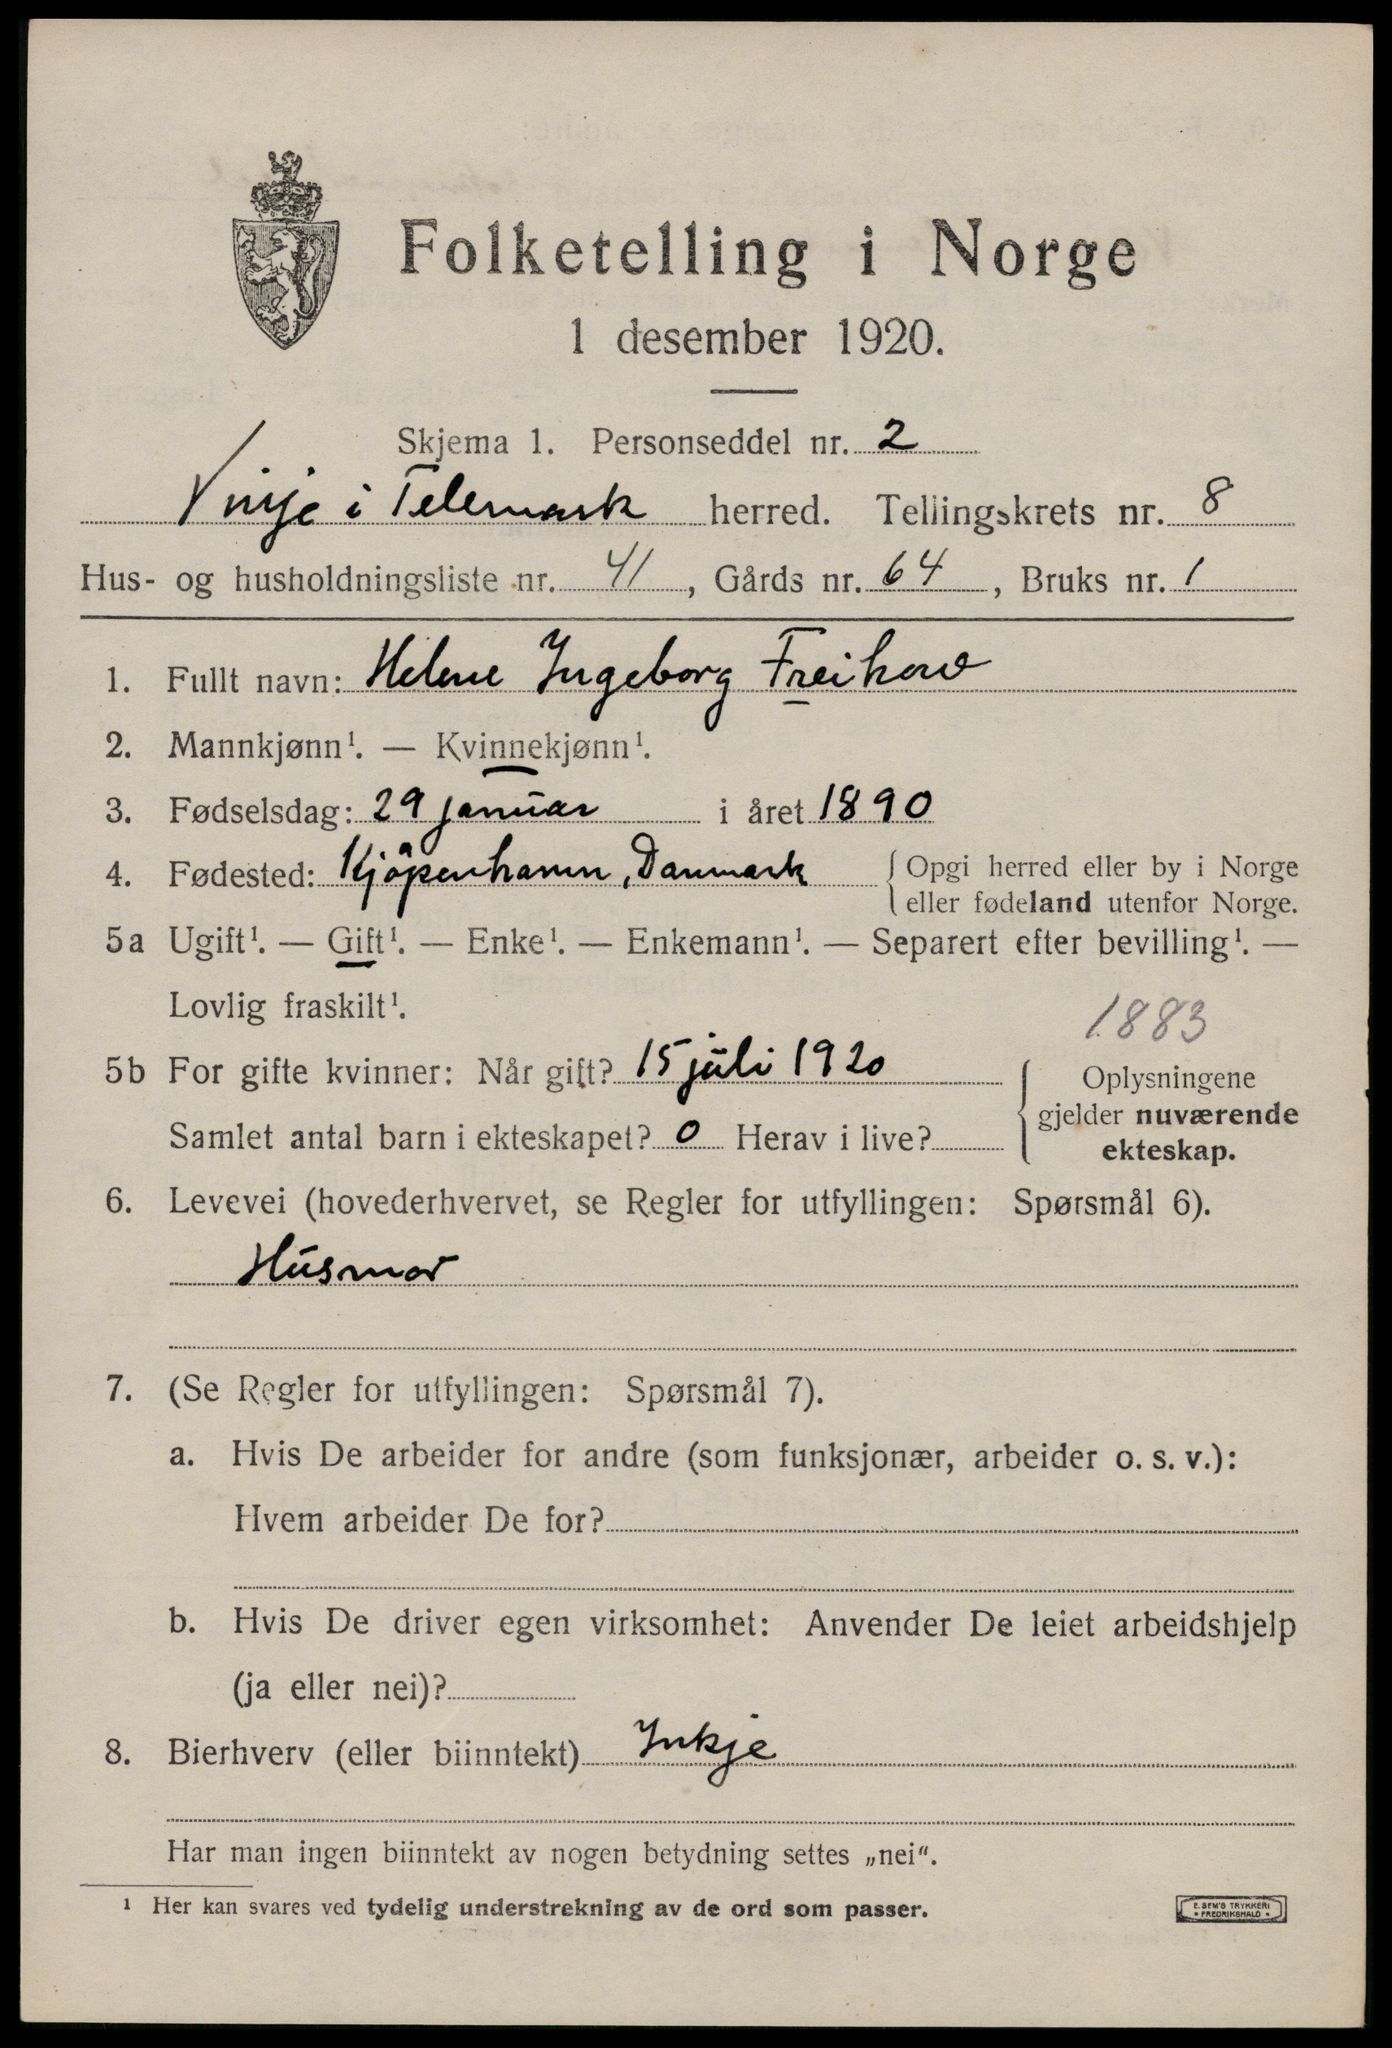 Folketelling i Norge
1 desember 1920.
Skjema 1. Personseddel nr. 2
Vinje i Telemark herred. Tellingskrets nr. 8
Hus- og husholdningsliste nr. 41, Gårds nr. 64, Bruks nr. 1
1. Fullt navn: Helene Ingeborg Freihow
2. Mannkjønn¹. — Kvinnekjønn¹.
3. Fødselsdag: 29 januar i året 1890
4. Fødested: Kjöpenhamn, Danmark { Opgi herred eller by i Norge
eller fødeland utenfor Norge.
5a Ugift¹. — Gift¹. — Enke¹. — Enkemann¹. — Separert efter bevilling¹. —
Lovlig fraskilt¹.
1883
5b For gifte kvinner: Når gift? 15 juli 1920
Samlet antal barn i ekteskapet? 0 Herav i live?
Oplysningene
gjelder nuværende
ekteskap.
6. Levevei (hovederhvervet, se Regler for utfyllingen: Spørsmål 6).
Husmor
7. (Se Regler for utfyllingen: Spørsmål 7).
a. Hvis De arbeider for andre (som funksjonær, arbeider o. s. v.):
Hvem arbeider De for?
b. Hvis De driver egen virksomhet: Anvender De leiet arbeidshjelp
(ja eller nei)?
8. Bierhverv (eller biinntekt) Inkje
Har man ingen biinntekt av nogen betydning settes „nei".
¹ Her kan svares ved tydelig understrekning av de ord som passer.
E. SEM'S TRYKKERI
• FREDRIKSHALD •